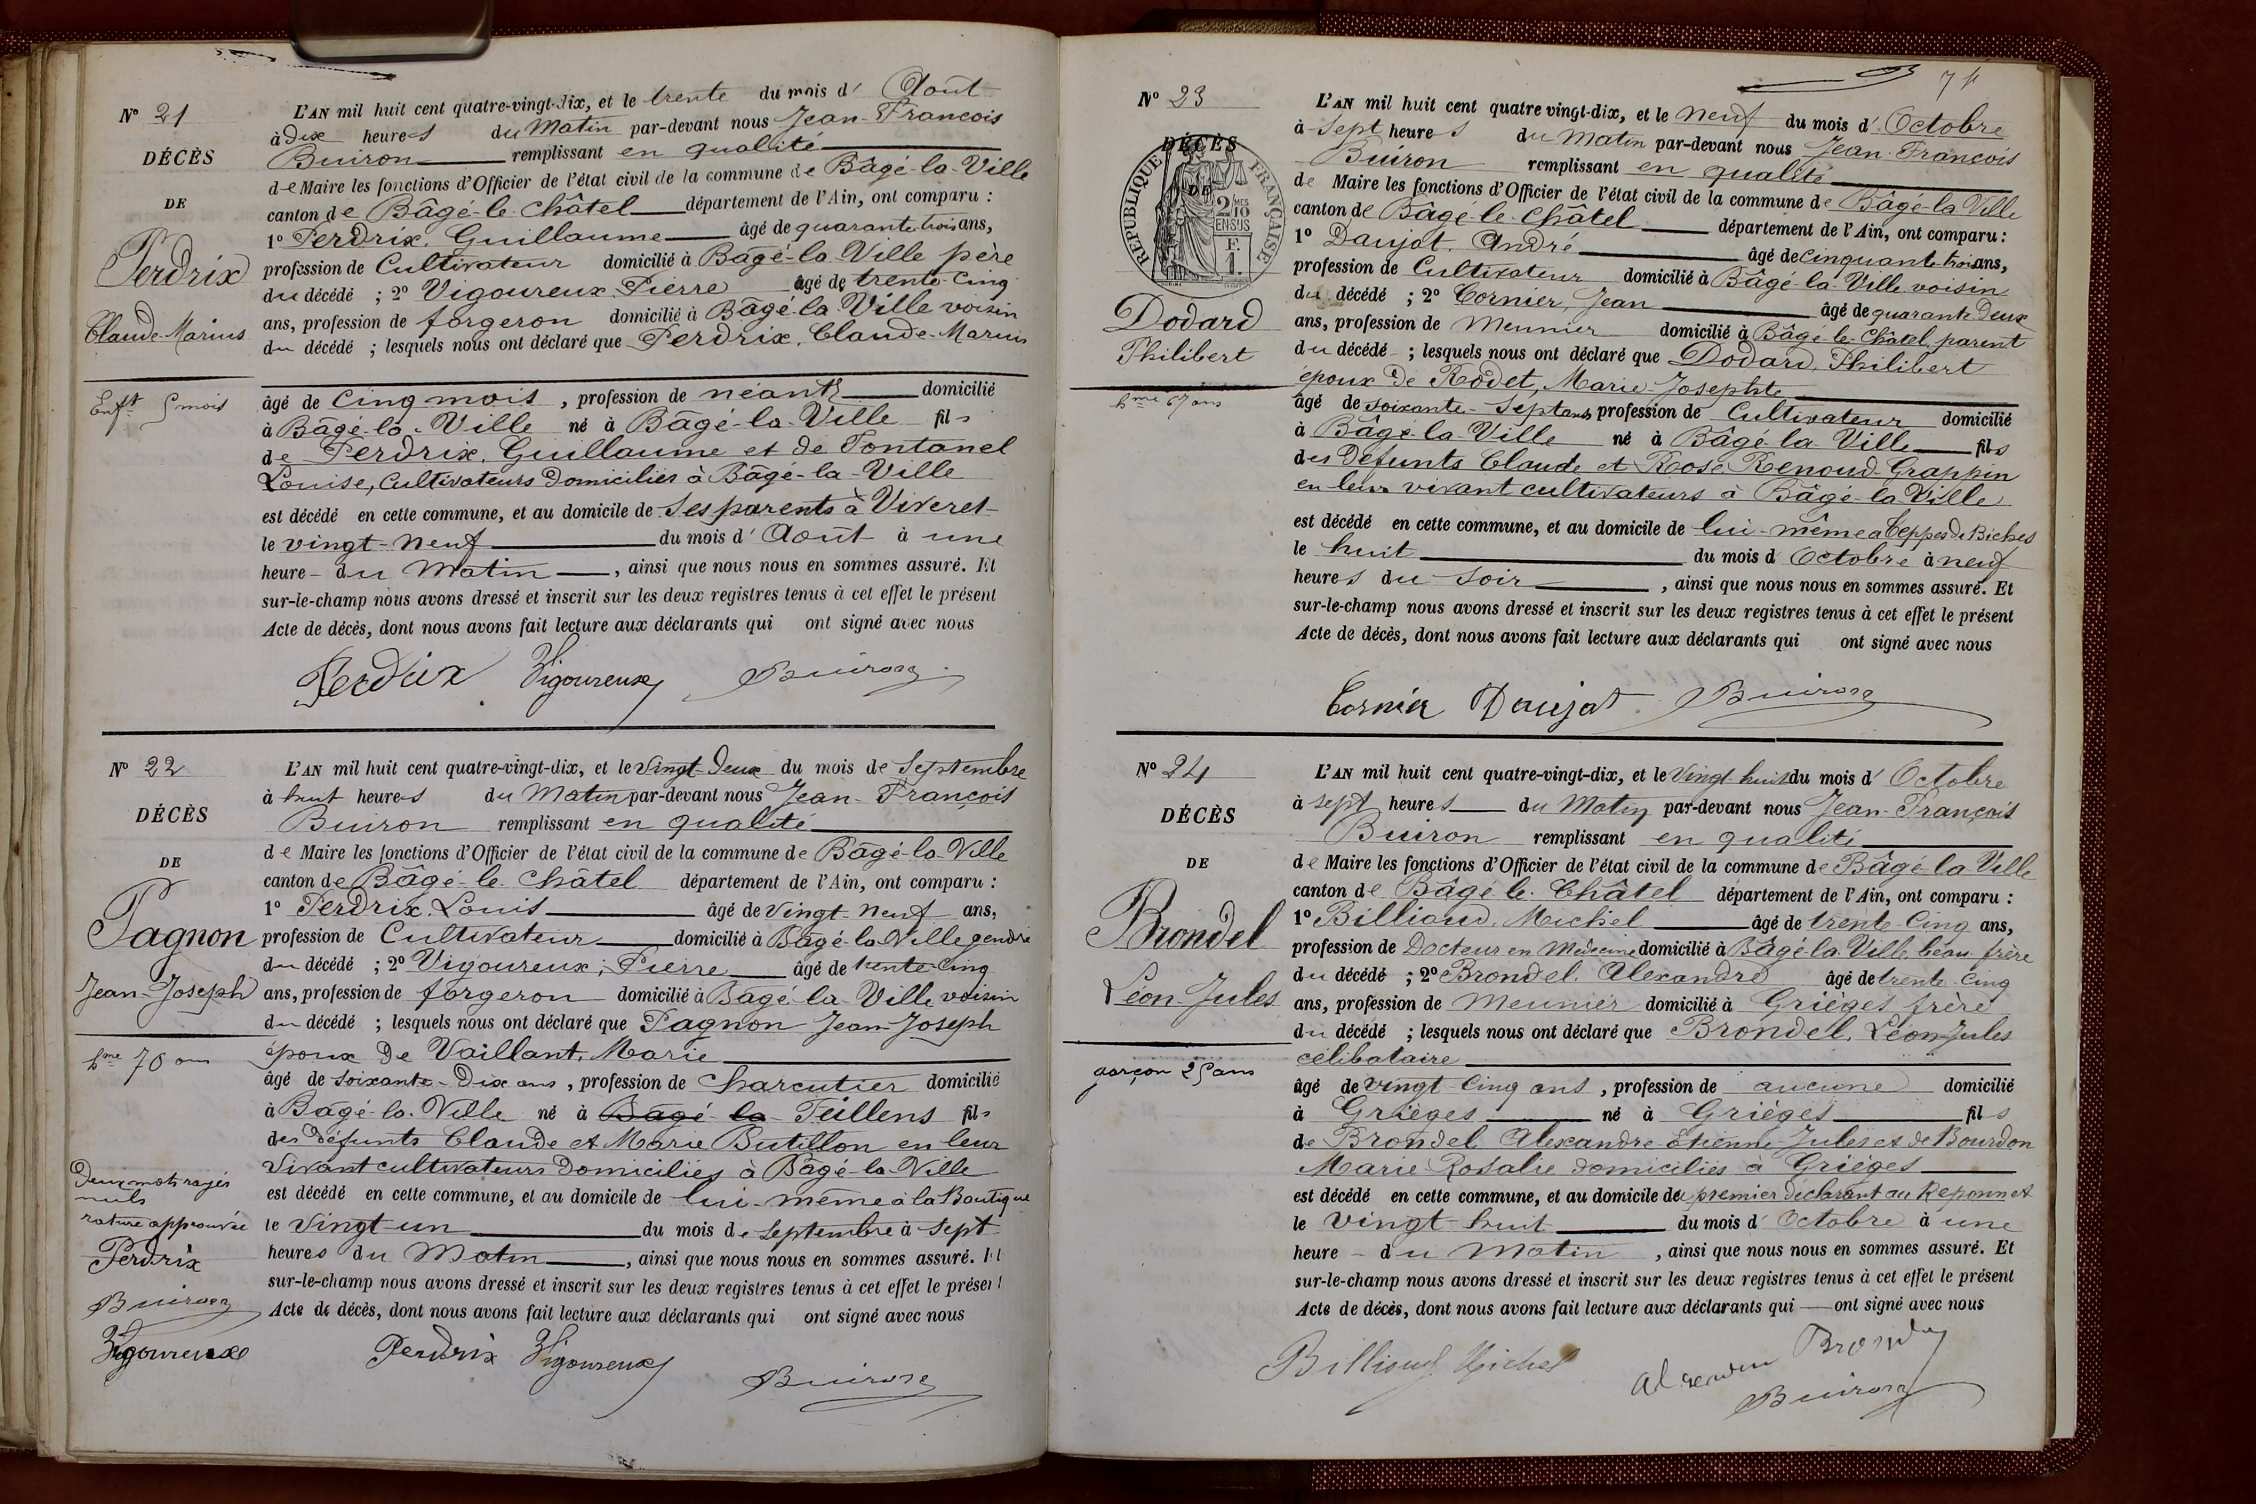 N° 21
DÉCÈS
DE
Perdrix
Claude-Marius
Enft 5 mois
L'AN mil huit cent quatre-vingt-dix, et le trente du mois d' Août
à dix heures du Matin par-devant nous Jean-François
Buiron remplissant en qualité
de Maire les fonctions d'Officier de l'état civil de la commune de Bâgé-la-Ville
canton de Bâgé-le-Châtel département de l'Ain, ont comparu :
1° Perdrix, Guillaume âgé de quarante trois ans,
profession de Cultivateur domicilié à Bâgé-la-Ville père
du décédé ; 2° Vigoureux, Pierre âgé de trente-cinq
ans, profession de forgeron domicilié à Bâgé-la-Ville voisin
du décédé ; lesquels nous ont déclaré que Perdrix, Claude-Marius
âgé de cinq mois, profession de néant domicilié
à Bâgé-la-Ville né à Bâgé-la-Ville fils
de Perdrix, Guillaume et de Fontanel
Louise, cultivateurs domiciliés à Bâgé-la-Ville
est décédé en cette commune, et au domicile de ses parents à Viveret
le vingt-neuf du mois d' Août à une
heure du Matin, ainsi que nous nous en sommes assuré. Et
sur-le-champ nous avons dressé et inscrit sur les deux registres tenus à cet effet le présent
Acte de décès, dont nous avons fait lecture aux déclarants qui ont signé avec nous
Perdrix Vigoureux Buiron
N° 22
DÉCÈS
DE
Pagnon
Jean-Joseph
hme 70 ans
Deux mots rayés
nuls
rature approuvée
Perdrix
Buiron
Vigoureux
L'AN mil huit cent quatre-vingt-dix, et le vingt-deux du mois de Septembre
à huit heures du Matin par-devant nous Jean-François
Buiron remplissant en qualité
de Maire les fonctions d'Officier de l'état civil de la commune de Bâgé-la-Ville
canton de Bâgé-le-Châtel département de l'Ain, ont comparu :
1° Perdrix, Louis âgé de vingt-neuf ans,
profession de Cultivateur domicilié à Bâgé-la-Ville gendre
du décédé ; 2° Vigoureux, Pierre âgé de trente-cinq
ans, profession de forgeron domicilié à Bâgé-la-Ville voisin
du décédé ; lesquels nous ont déclaré que Pagnon Jean-Joseph
époux de Vaillant, Marie
âgé de soixante-dix ans, profession de charcutier domicilié
à Bâgé-la-Ville né à Bâgé-la Feillens fils
des défunts Claude et Marie Butillon en leur
vivant cultivateurs domiciliés à Bâgé-la-Ville
est décédé en cette commune, et au domicile de lui-même à la Boutique
le vingt-un du mois de Septembre à sept
heures du Matin, ainsi que nous nous en sommes assuré. Et
sur-le-champ nous avons dressé et inscrit sur les deux registres tenus à cet effet le présent
Acte de décès, dont nous avons fait lecture aux déclarants qui ont signé avec nous
Perdrix Vigoureux
Buiron
N° 23
DÉCÈS
DE
RÉPUBLIQUE FRANÇAISE
2/10 MES
EN SUS
F. 1.
Dodard
Philibert
hme 67 ans
L'AN mil huit cent quatre vingt-dix, et le neuf du mois d' Octobre
à sept heures du Matin par-devant nous Jean-François
Buiron remplissant en qualité
de Maire les fonctions d'Officier de l'état civil de la commune de Bâgé-la-Ville
canton de Bâgé-le-Châtel département de l'Ain, ont comparu :
1° Daujat, André âgé de cinquante trois ans,
profession de Cultivateur domicilié à Bâgé-la-Ville voisin
du décédé ; 2° Cornier, Jean âgé de quarante deux
ans, profession de Meunier domicilié à Bâgé-le-Châtel parent
du décédé ; lesquels nous ont déclaré que Dodard, Philibert
époux de Rodet, Marie-Josephte
âgé de soixante-sept ans profession de Cultivateur domicilié
à Bâgé-la-Ville né à Bâgé-la-Ville fils
des défunts Claude et Rose Renoud-Grappin
en leur vivant cultivateurs à Bâgé-la-Ville
est décédé en cette commune, et au domicile de lui-même à Teppes de Biches
le huit du mois d' Octobre à neuf
heures du soir, ainsi que nous nous en sommes assuré. Et
sur-le-champ nous avons dressé et inscrit sur les deux registres tenus à cet effet le présent
Acte de décès, dont nous avons fait lecture aux déclarants qui ont signé avec nous
Cornier Daujat Buiron
N° 24
DÉCÈS
DE
Brondel
Léon-Jules
garçon 25 ans
L'AN mil huit cent quatre-vingt-dix, et le vingt-huit du mois d' Octobre
à sept heures du Matin par-devant nous Jean-François
Buiron remplissant en qualité
de Maire les fonctions d'Officier de l'état civil de la commune de Bâgé-la-Ville
canton de Bâgé-le-Châtel département de l'Ain, ont comparu :
1° Billioud, Michel âgé de trente-cinq ans,
profession de Docteur en Médecine domicilié à Bâgé-la-Ville beau-frère
du décédé ; 2° Brondel, Alexandre âgé de trente-cinq
ans, profession de Meunier domicilié à Grièges frère
du décédé ; lesquels nous ont déclaré que Brondel, Léon-Jules
célibataire
âgé de vingt-cinq ans, profession de aucune domicilié
à Grièges né à Grièges fils
de Brondel Alexandre-Etienne-Jules et de Bourdon
Marie-Rosalie domiciliés à Grièges
est décédé en cette commune, et au domicile du premier déclarant au Reponnet
le vingt-huit du mois d' Octobre à une
heure du Matin, ainsi que nous nous en sommes assuré. Et
sur-le-champ nous avons dressé et inscrit sur les deux registres tenus à cet effet le présent
Acte de décès, dont nous avons fait lecture aux déclarants qui ont signé avec nous
Billioud Michel Alexandre Brondel
Buiron